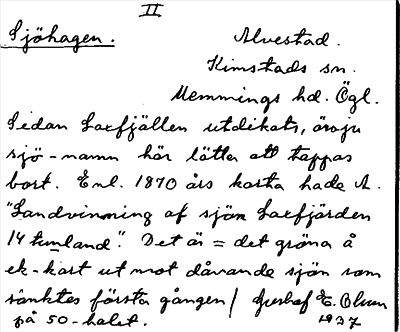 II
Sjöhagen.
Alvestad.
Kimstads sn.
Memmings hd. Ögl.
Sedan Laxfjällen utdikats, äro ju
sjö-namn här lätta att tappas
bort. Enl. 1870 års karta hade A.
"Landvinning af sjön Laxfjärden
14 tunland". Det är = det gröna å
ek-kart ut mot dåvarande sjön som
sänktes första gången / E. Olsson
på 50-halet. 1937